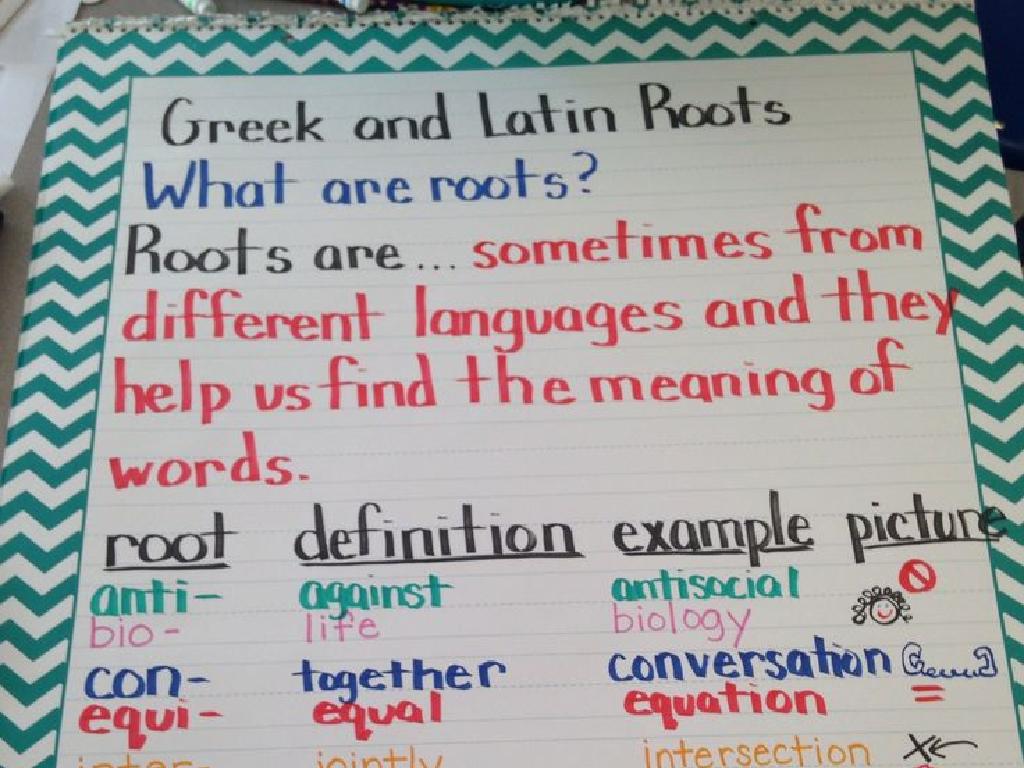 Greek and Latin Roots
What are roots?
Roots are... sometimes from
different languages and they
help us find the meaning of
words.
root definition example picture
anti- against antisocial
bio- life biology
con- together conversation
equi- equal equation =
inter- jointly intersection